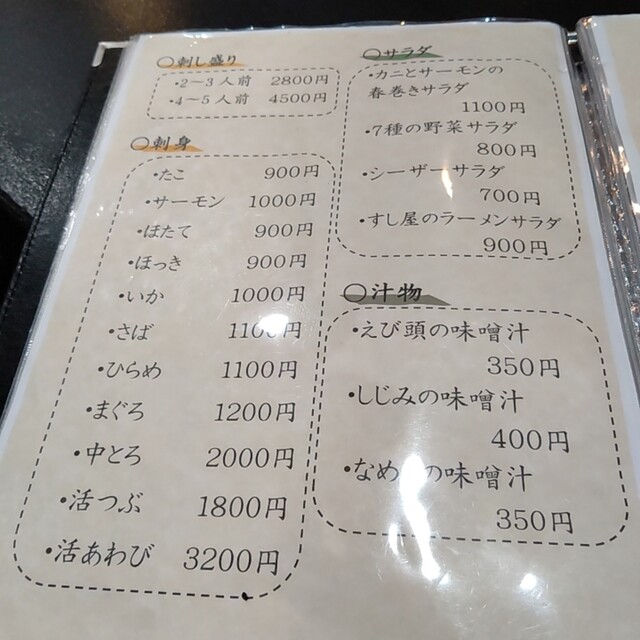 〇刺し盛り
・2～3人前 2800円
・4～5人前 4500円
〇刺身
・たこ 900円
・サーモン 1000円
・ほたて 900円
・ほっき 900円
・いか 1000円
・さば 1100円
・ひらめ 1100円
・まぐろ 1200円
・中とろ 2000円
・活つぶ 1800円
・活あわび 3200円
〇サラダ
・カニとサーモンの
春巻きサラダ
1100円
・7種の野菜サラダ
800円
・シーザーサラダ
700円
・すし屋のラーメンサラダ
900円
〇汁物
・えび頭の味噌汁
350円
・しじみの味噌汁
400円
の味噌汁
350円